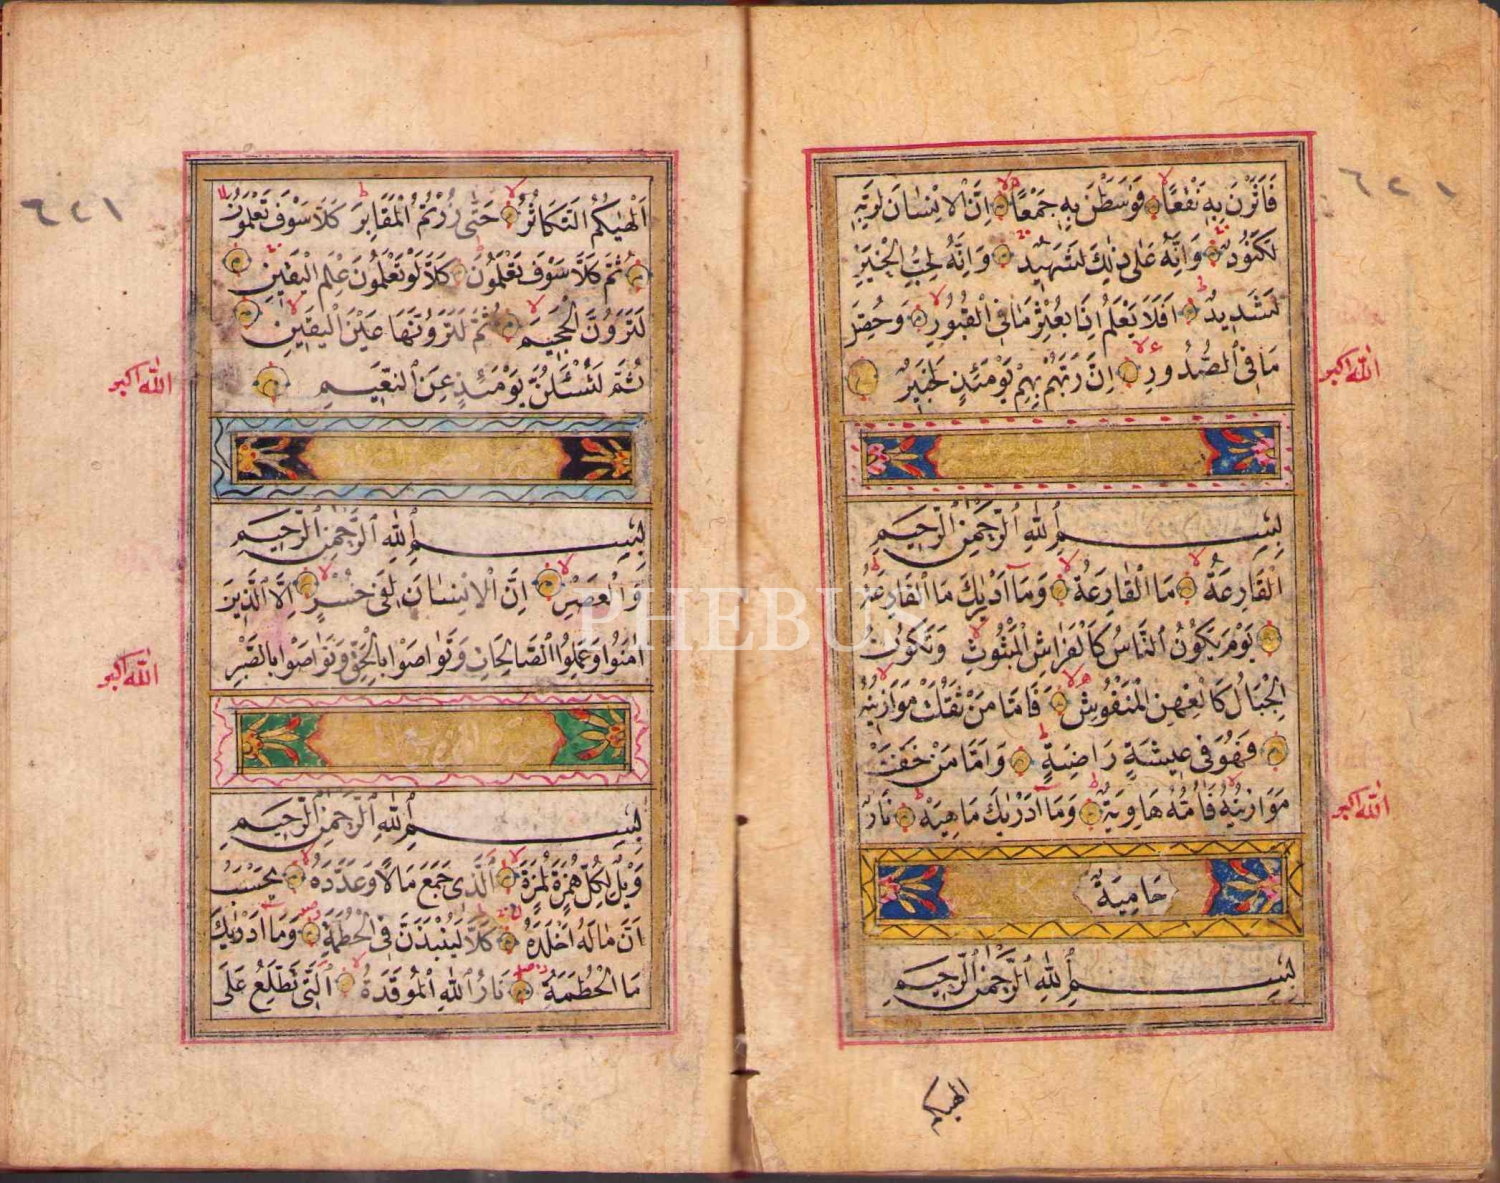 فَاَثَرْنَ بِهٖ نَقْعًا ۙ فَوَسَطْنَ بِهٖ جَمْعًا ۙ اِنَّ الْاِنْسَانَ لِرَبِّهٖ
لَكَنُودٌ ۚ وَاِنَّهُ عَلٰى ذٰلِكَ لَشَهِيدٌ ۚ وَاِنَّهُ لِحُبِّ الْخَيْرِ
لَشَدِيدٌ ۗ اَفَلَا يَعْلَمُ اِذَا بُعْثِرَ مَا فِى الْقُبُورِ ۙ وَحُصِّلَ
مَا فِى الصُّدُورِ ۙ اِنَّ رَبَّهُمْ بِهِمْ يَوْمَئِذٍ لَخَبِيرٌ
الله اكبر
بِسْمِ اللهِ الرَّحْمٰنِ الرَّحِيمِ
اَلْقَارِعَةُ ۙ مَا الْقَارِعَةُ ۚ وَمَٓا اَدْرٰيكَ مَا الْقَارِعَةُ
يَوْمَ يَكُونُ النَّاسُ كَالْفَرَاشِ الْمَبْثُوثِ وَتَكُونُ
الْجِبَالُ كَالْعِهْنِ الْمَنْفُوشِ ۗ فَاَمَّا مَنْ ثَقُلَتْ مَوَازِينُهُ
فَهُوَ فِى عِيشَةٍ رَاضِيَةٍ ۗ وَاَمَّا مَنْ خَفَّتْ
مَوَازِينُهُ فَاُمُّهُ هَاوِيَةٌ ۗ وَمَٓا اَدْرٰيكَ مَا هِيَهْ ۗ نَارٌ
الله اكبر
حَامِيَةٌ
بِسْمِ اللهِ الرَّحْمٰنِ الرَّحِيمِ
الهيكم
اَلْهٰيكُمُ التَّكَاثُرُ ۙ حَتّٰى زُرْتُمُ الْمَقَابِرَ كَلَّا سَوْفَ تَعْلَمُونَ
ثُمَّ كَلَّا سَوْفَ تَعْلَمُونَ كَلَّا لَوْ تَعْلَمُونَ عِلْمَ الْيَقِينِ
لَتَرَوُنَّ الْجَحِيمَ ۙ ثُمَّ لَتَرَوُنَّهَا عَيْنَ الْيَقِينِ
ثُمَّ لَتُسْـَٔلُنَّ يَوْمَئِذٍ عَنِ النَّعِيمِ
الله اكبر
بِسْمِ اللهِ الرَّحْمٰنِ الرَّحِيمِ
وَالْعَصْرِ ۙ اِنَّ الْاِنْسَانَ لَفِى خُسْرٍ ۙ اِلَّا الَّذِينَ
اٰمَنُوا وَعَمِلُوا الصَّالِحَاتِ وَتَوَاصَوْا بِالْحَقِّ وَتَوَاصَوْا بِالصَّبْرِ
الله اكبر
بِسْمِ اللهِ الرَّحْمٰنِ الرَّحِيمِ
وَيْلٌ لِكُلِّ هُمَزَةٍ لُمَزَةٍ ۙ الَّذِى جَمَعَ مَالًا وَعَدَّدَهُ ۙ يَحْسَبُ
اَنَّ مَالَهُ اَخْلَدَهُ ۚ كَلَّا لَيُنْبَذَنَّ فِى الْحُطَمَةِ وَمَٓا اَدْرٰيكَ
مَا الْحُطَمَةُ نَارُ اللهِ الْمُوقَدَةُ ۙ الَّتِى تَطَّلِعُ عَلَى
PHEBUS